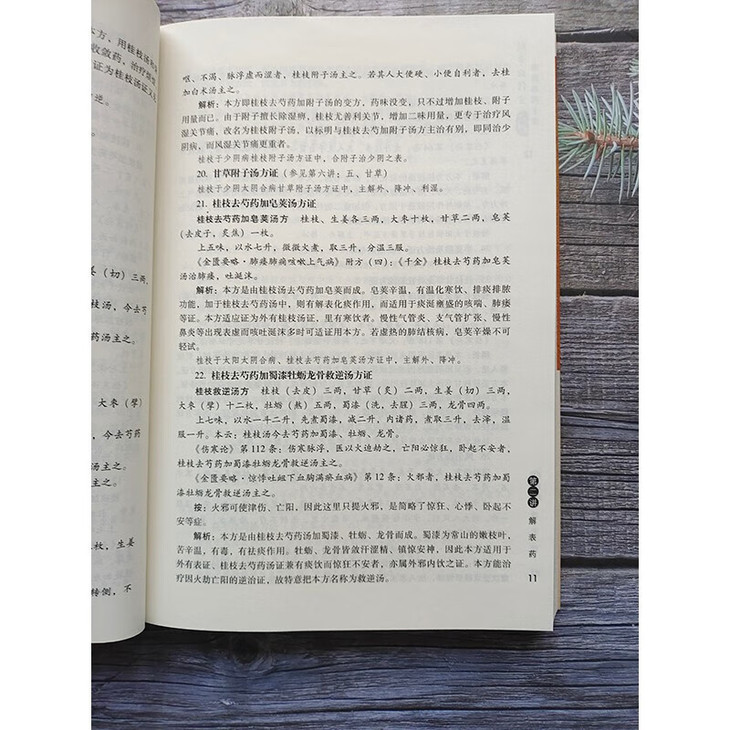 本方、用桂枝汤
收敛药，治疗
证为桂枝汤证又
逆。
姜（切）三两，
枝汤，今去芍
药汤主之。
大枣（擘）
今去芍药
之。
枚，生姜
转侧，不
呕、不渴、脉浮虚而涩者，桂枝附子汤主之。若其人大便硬、小便自利者，去桂
加白术汤主之。
解析：本方即桂枝去芍药加附子汤的变方，药味没变，只不过增加桂枝、附子
用量而已。由于附子擅长除湿痹，桂枝尤善利关节，增加二味用量，更专于治疗风
湿关节痛，改名为桂枝附子汤，以标明与桂枝去芍药加附子汤方主治有别，即同治少
阴病，而风湿关节痛更重者。
桂枝于少阴病桂枝附子汤方证中，合附子治少阴之表。
20. 甘草附子汤方证（参见第六讲：五、甘草）
桂枝于少阴太阴合病甘草附子汤方证中，主解外、降冲、利湿。
21. 桂枝去芍药加皂荚汤方证
桂枝去芍药加皂荚汤方 桂枝、生姜各三两，大枣十枚，甘草二两，皂荚
（去皮子，炙焦）一枚。
上五味，以水七升，微微火煮，取三升，分温三服。
《金匮要略·肺痿肺痈咳嗽上气病》附方（四）：《千金》桂枝去芍药加皂荚
汤治肺痿，吐涎沫。
解析：本方是由桂枝汤去芍药加皂荚而成。皂荚辛温，有温化寒饮、排痰排脓
功能，加于桂枝去芍药汤中，则有解表化痰作用，而适用于痰涎壅盛的咳喘、肺痿
等证。本方适应证为外有桂枝汤证，里有寒饮者。慢性气管炎、支气管扩张、慢性
鼻炎等出现表虚而咳吐涎沫多时可适证用本方。若虚热的肺结核病，皂荚辛燥不可
轻试。
桂枝于太阳太阴合病、桂枝去芍药加皂荚汤方证中，主解外、降冲。
22. 桂枝去芍药加蜀漆牡蛎龙骨救逆汤方证
桂枝救逆汤方 桂枝（去皮）三两，甘草（炙）二两，生姜（切）三两，
大枣（擘）十二枚，牡蛎（熬）五两，蜀漆（洗，去腥）三两，龙骨四两。
上七味，以水一斗二升，先煮蜀漆，减二升，内诸药，煮取三升，去滓，温
服一升。本云：桂枝汤今去芍药加蜀漆、牡蛎、龙骨。
《伤寒论》第 112 条：伤寒脉浮，医以火迫劫之，亡阳必惊狂，卧起不安者，
桂枝去芍药加蜀漆牡蛎龙骨救逆汤主之。
《金匮要略·惊悸吐衄下血胸满瘀血病》第 12 条：火邪者，桂枝去芍药加蜀
漆牡蛎龙骨救逆汤主之。
按：火邪可使津伤、亡阳，因此这里只提火邪，是简略了惊狂、心悸、卧起不
安等症。
解析：本方是由桂枝去芍药汤加蜀漆、牡蛎、龙骨而成。蜀漆为常山的嫩枝叶，
苦辛温，有毒，有祛痰作用。牡蛎、龙骨皆敛汗涩精、镇惊安神，因此本方适用于
外有表证、桂枝去芍药汤证兼有痰饮而惊狂不安者，亦属外邪内饮之证。本方能治
疗因火劫亡阳的逆治证，故特意把本方名称为救逆汤。
第二讲
解表药
11